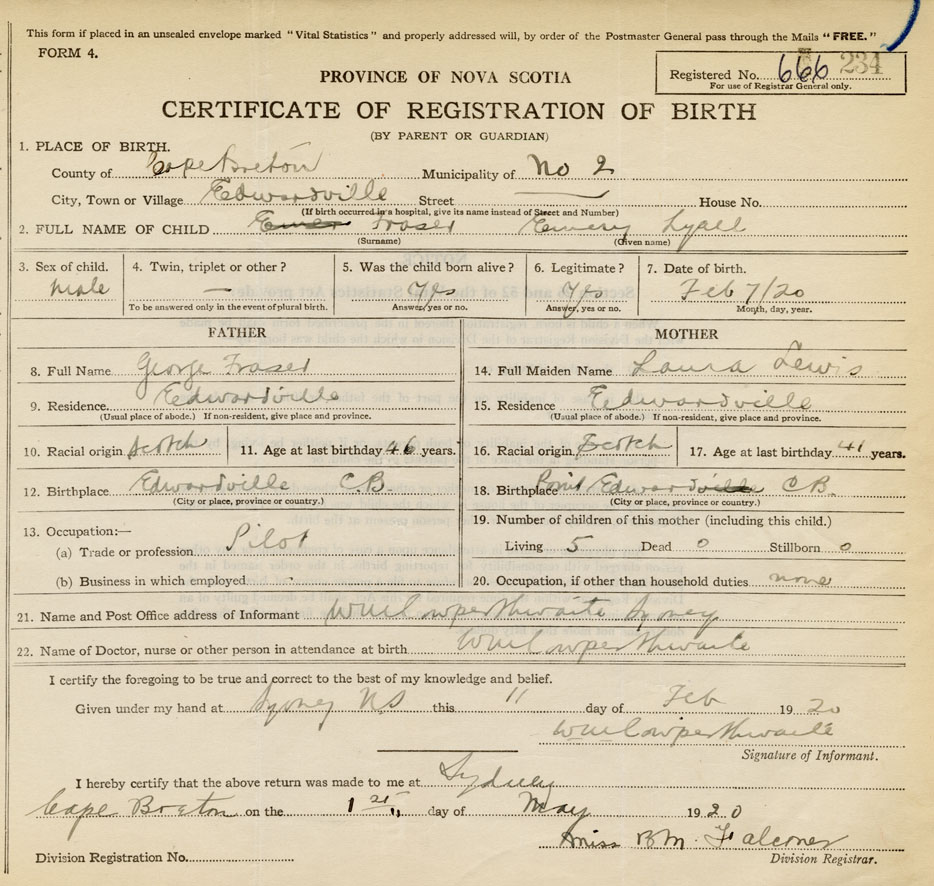 This form if placed in an unsealed envelope marked "Vital Statistics" and properly addressed will, by order of the Postmaster General pass through the Mails "FREE."
FORM 4.
Registered No. 666 234
For use of Registrar General only.
PROVINCE OF NOVA SCOTIA
CERTIFICATE OF REGISTRATION OF BIRTH
(BY PARENT OR GUARDIAN)
1. PLACE OF BIRTH.
County of Cape Breton Municipality of No 2
City, Town or Village Edwardsville Street — House No.
(If birth occurred in a hospital, give its name instead of Street and Number)
2. FULL NAME OF CHILD Fraser Emery Lyall
(Surname) (Given name)
3. Sex of child. 4. Twin, triplet or other? 5. Was the child born alive? 6. Legitimate? 7. Date of birth.
Male — Yes Yes Feb 7/20
To be answered only in the event of plural birth. Answer, yes or no. Answer, yes or no. Month, day, year.
FATHER MOTHER
8. Full Name George Fraser 14. Full Maiden Name Laura Lewis
9. Residence Edwardsville 15. Residence Edwardsville
(Usual place of abode.) If non-resident, give place and province. (Usual place of abode.) If non-resident, give place and province.
10. Racial origin Scotch 11. Age at last birthday 46 years. 16. Racial origin Scotch 17. Age at last birthday 41 years.
12. Birthplace Edwardsville C.B. 18. Birthplace Point Edward C B.
(City or place, province or country.) (City or place, province or country.)
13. Occupation:— 19. Number of children of this mother (including this child.)
(a) Trade or profession Pilot Living 5 Dead 0 Stillborn 0
(b) Business in which employed 20. Occupation, if other than household duties none
21. Name and Post Office address of Informant Sydney
22. Name of Doctor, nurse or other person in attendance at birth
I certify the foregoing to be true and correct to the best of my knowledge and belief.
Given under my hand at Sydney NS this 11 day of Feb 1920
Signature of Informant.
I hereby certify that the above return was made to me at Sydney
Cape Breton on the 1st day of May 1920
Miss B M. Falconer
Division Registration No. Division Registrar.